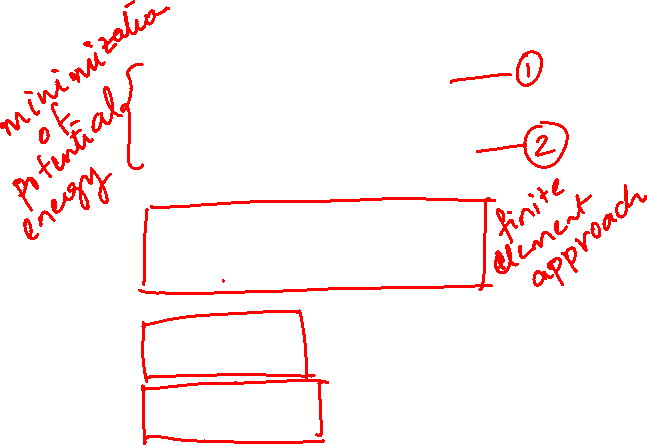 minimization
of
potential
energy
1
2
finite
element
approach